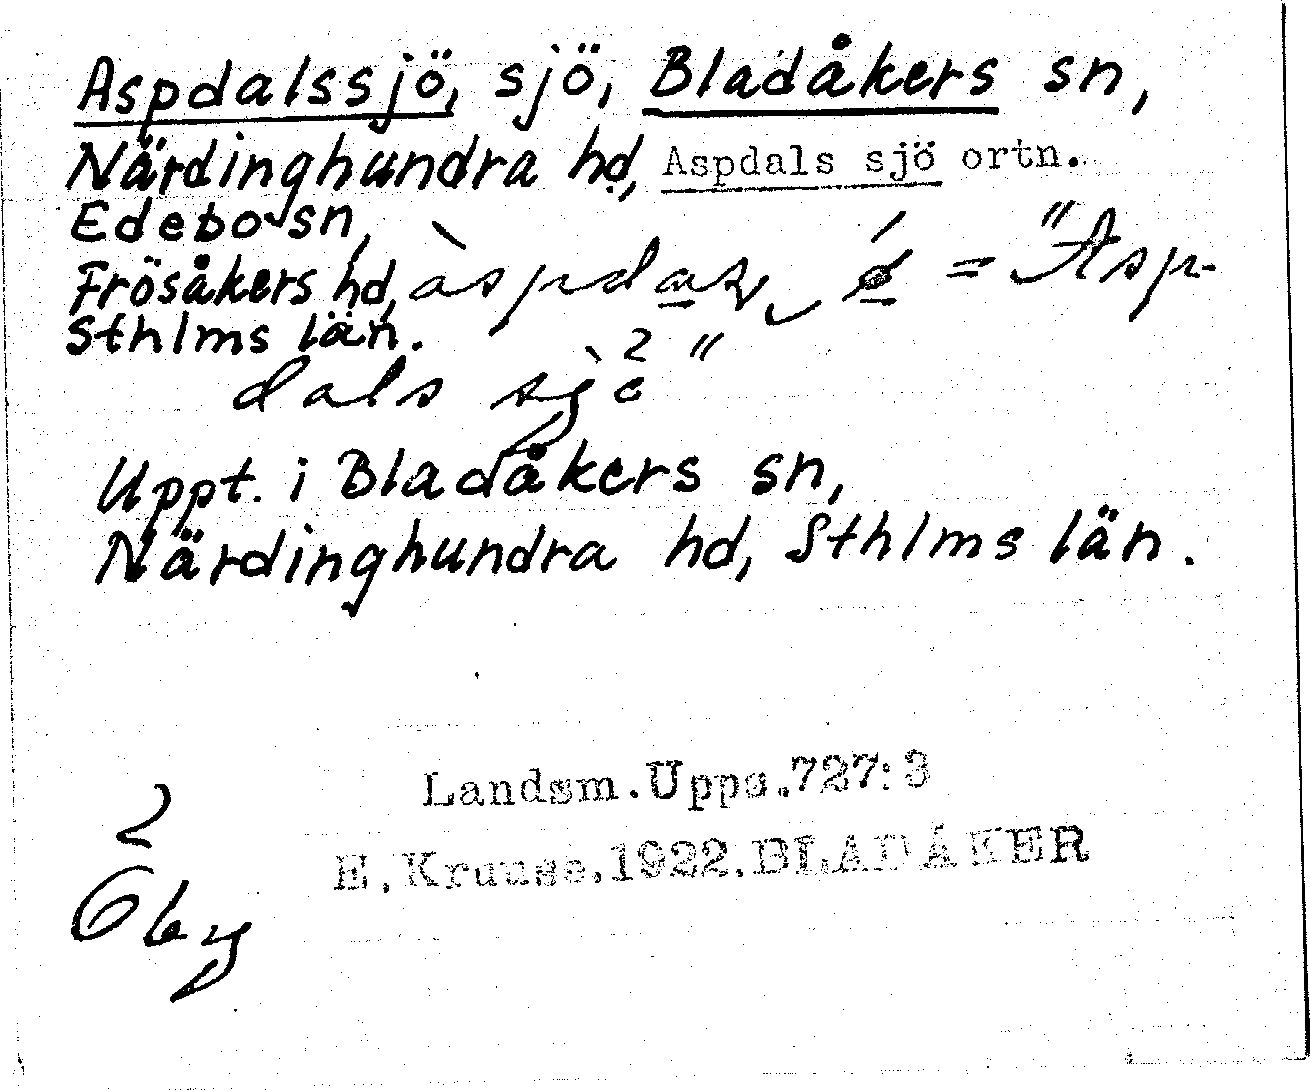 Aspdalssjö, sjö, Bladåkers sn,
Närdinghundra hd, Aspdals sjö ortn.
Edebo sn,
Frösåkers hd, = "Asp-
Sthlms län.
dals sjö"
Uppt. i Bladåkers sn,
Närdinghundra hd, Sthlms län.
Landsm.Upps.727:3
E.Krause.1922.BLADÅKER
2